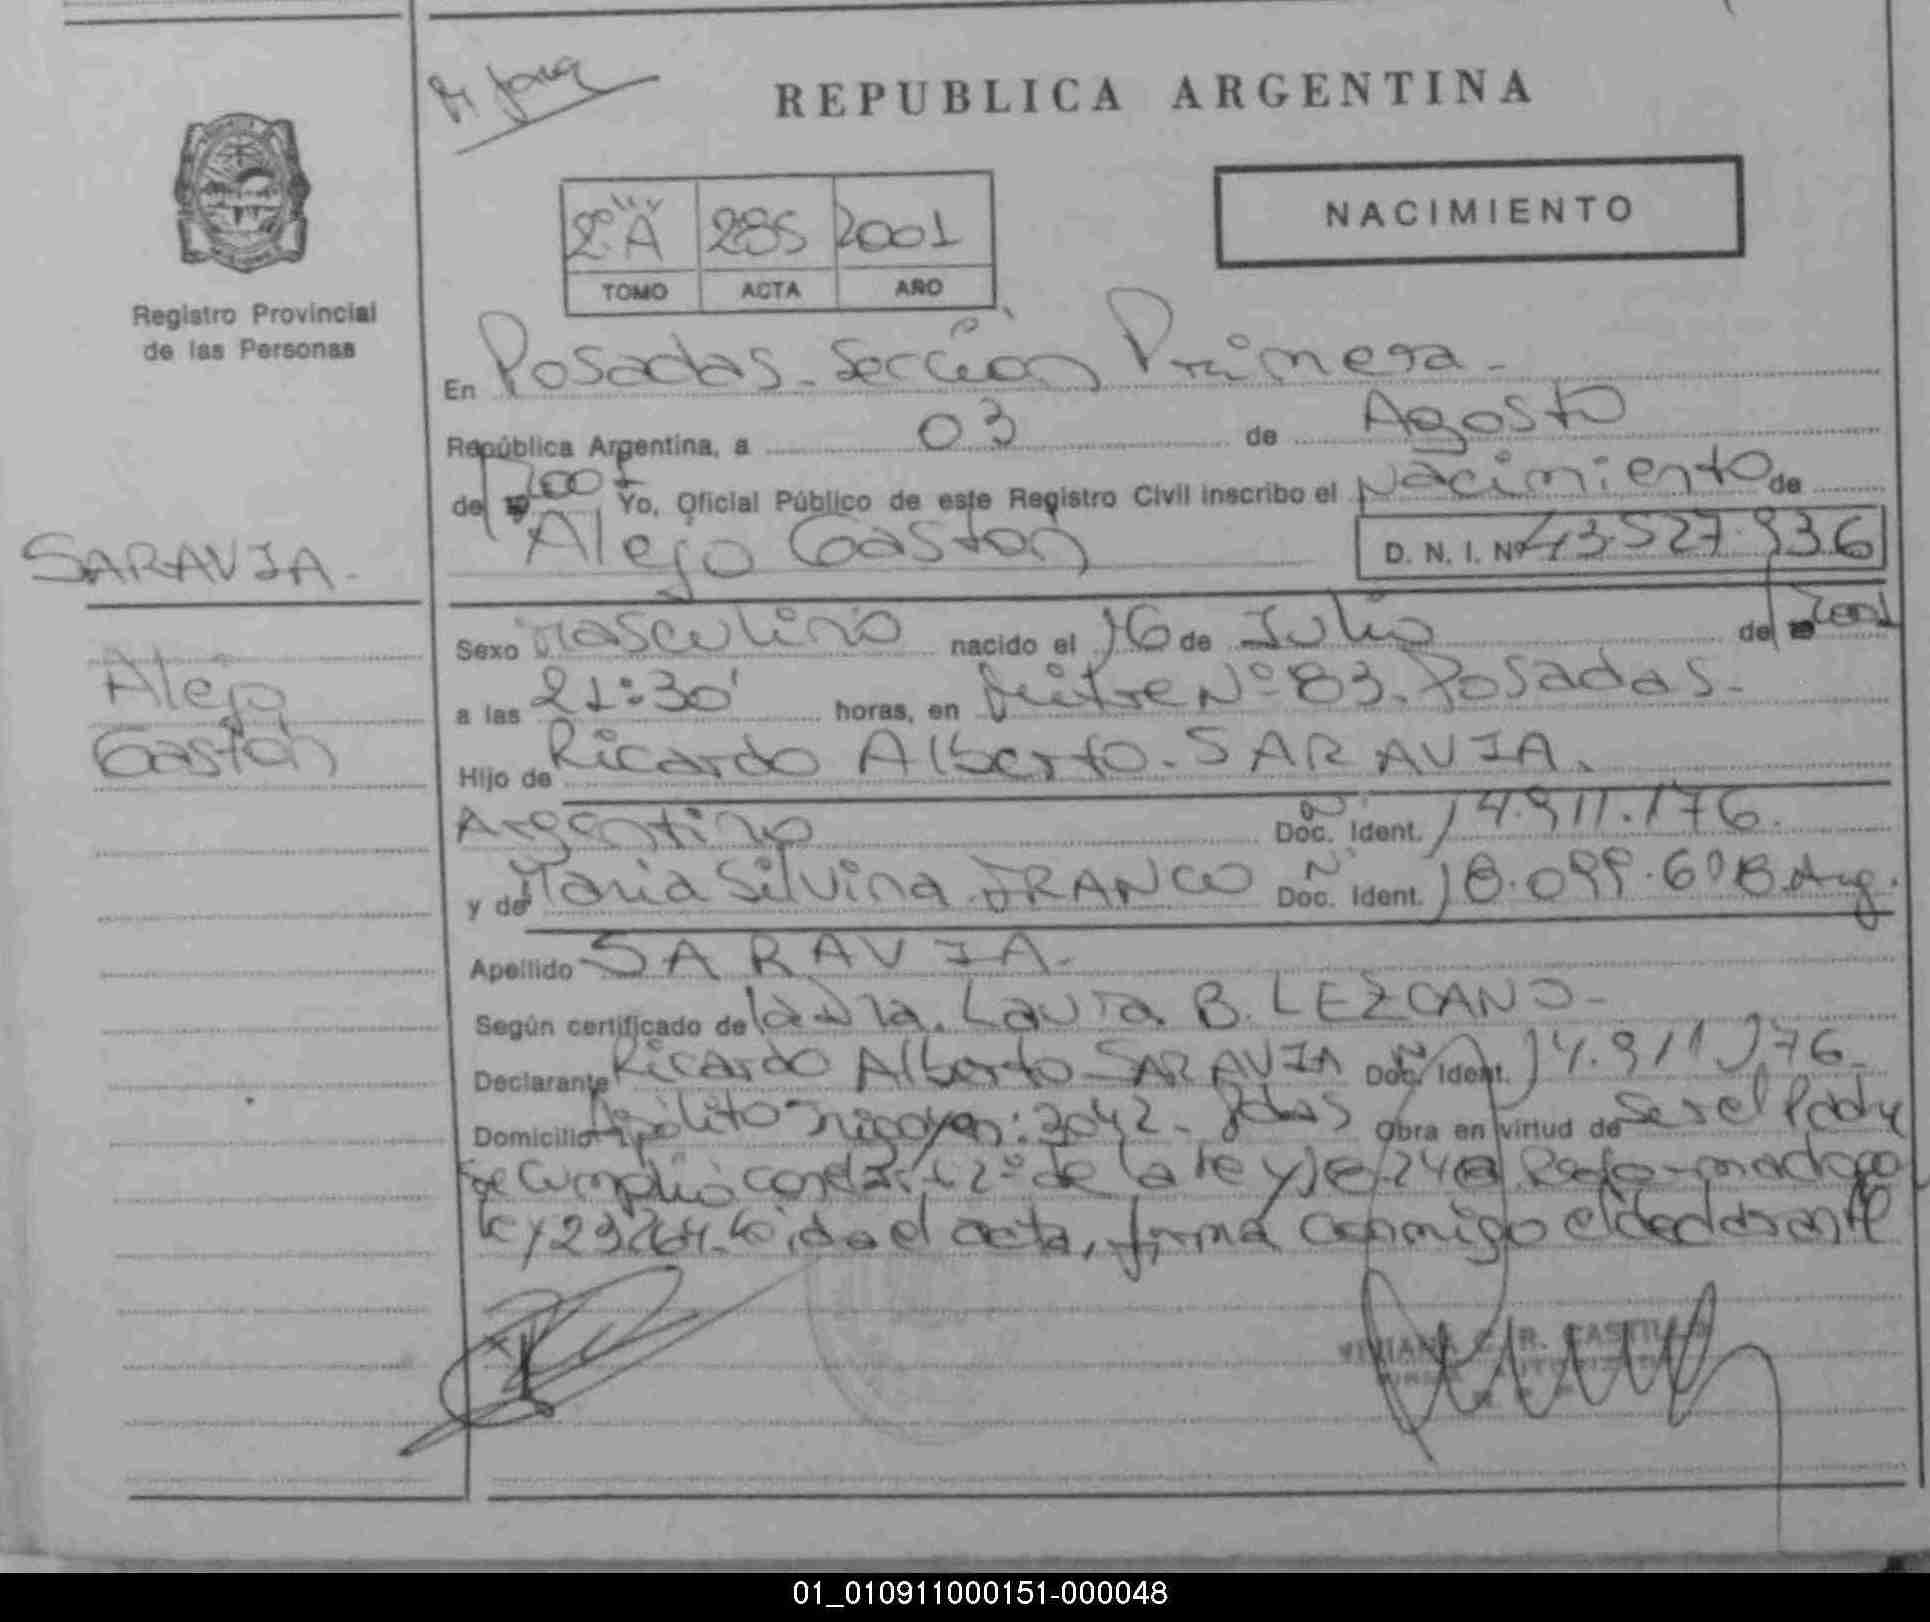 REPUBLICA ARGENTINA
2º "A" 285 2001
TOMO ACTA AÑO
NACIMIENTO
Registro Provincial
de las Personas
En Posadas. Sección Primera.
República Argentina, a 03 de Agosto
de 2001 Yo, Oficial Público de este Registro Civil inscribo el Nacimiento de
Alejo Gastón D. N. I. Nº 43.527.936
SARAVIA.
Alejo
Gastón
Sexo Masculino nacido el 16 de Julio de 2001
a las 21:30' horas, en Mitre Nº 83. Posadas.
Hijo de Ricardo Alberto. SARAVIA.
Argentino Doc. Ident. 14.911.176.
y de Maria Silvina FRANCO Doc. Ident. 18.099.608 Arg.
Apellido SARAVIA.
Según certificado de la Dra. Laura B. LEZCANO.
Declarante Ricardo Alberto SARAVIA Doc. Ident. 14.911.176.
Domicilio Ipólito Irigoyen: 3042. Pdas Obra en virtud de ser el Padre
Se cumplió con el art 2º de la ley
ley 23264. Leída el acta, firma conmigo el declarante
VIVIANA C. R. CASTILLO
01_010911000151-000048